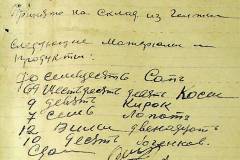 Принято на склад из
следующие материалы и
продукты:
70 семьдесят Сапъ
69 Шестдесят девять Косы
9 девять Кирок
7 семь Лопатъ
12 Вилы двенадцать
10 десять
Сдал